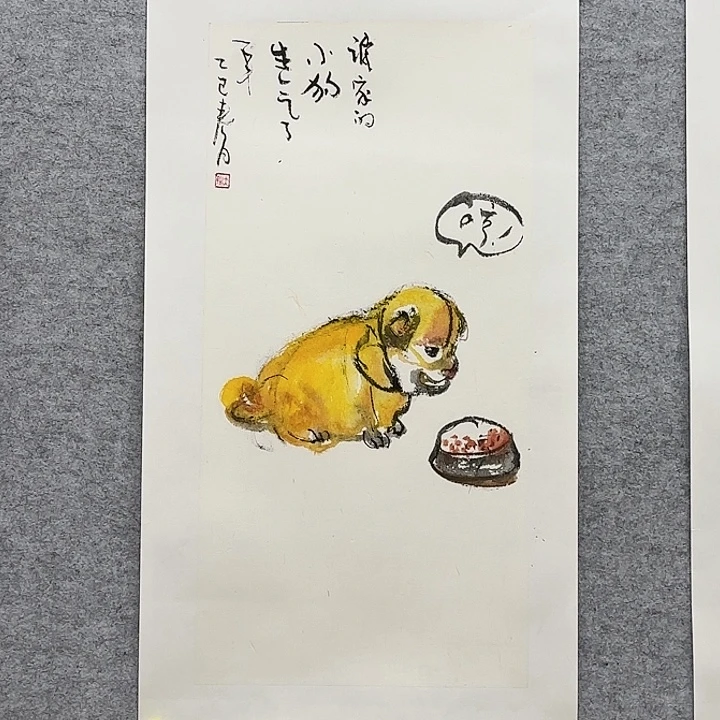 谁家的
小狗
生气了
乙巳春月
哼!